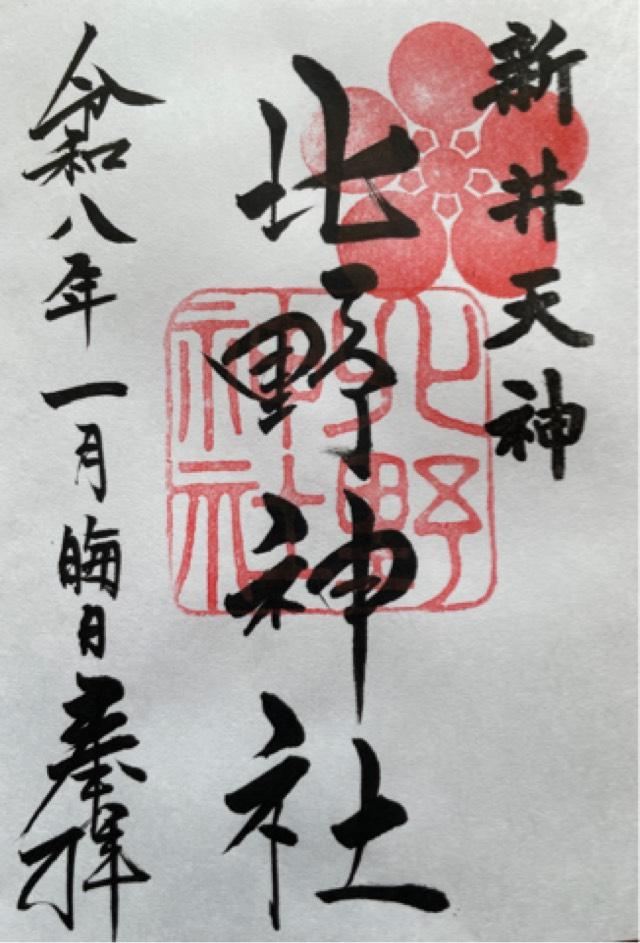 新井天神
北野神社
令和八年一月晦日奉拝
北野
神社